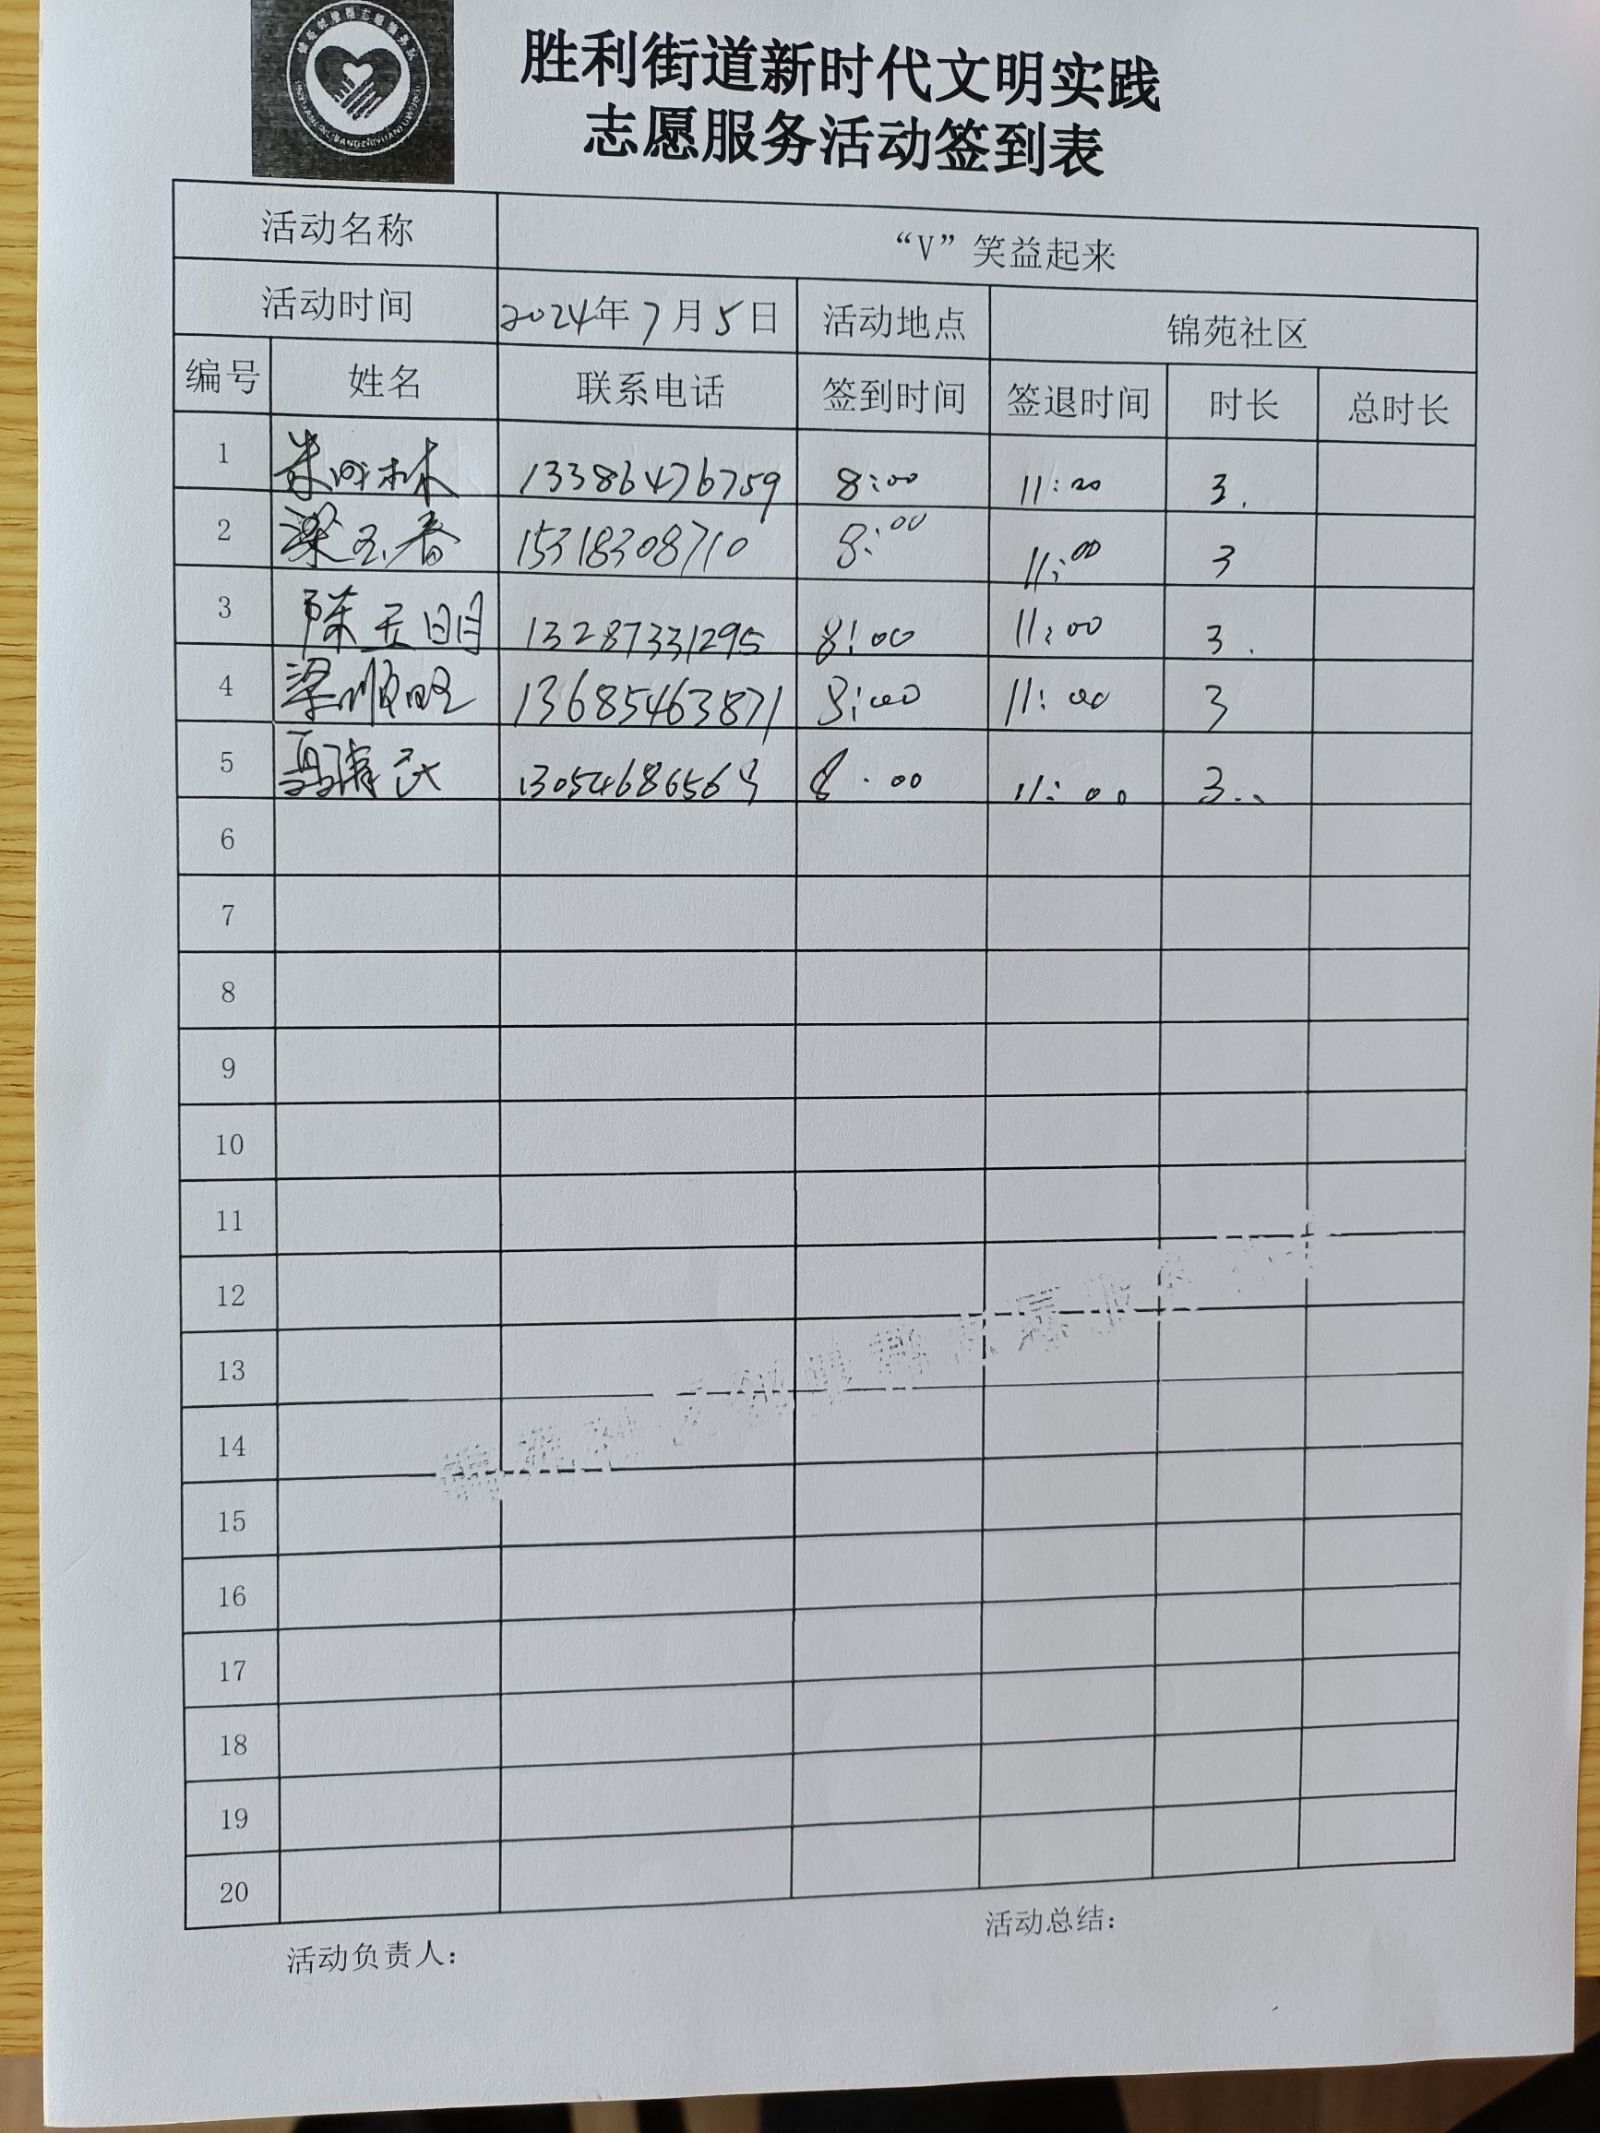 胜利街道新时代文明实践
志愿服务活动签到表
活动名称 “V”笑益起来
活动时间 2024年7月5日 活动地点 锦苑社区
编号 姓名 联系电话 签到时间 签退时间 时长 总时长
1 林 13386476759 8:00 11:00 3.
2 梁玉春 15318308710 8:00 11:00 3
3 陈天明 13287331295 8:00 11:00 3.
4 梁顺旺 13685463871 8:00 11:00 3
5 13054686569 8:00 11:00 3..
6
7
8
9
10
11
12
13
14
15
16
17
18
19
20
活动负责人：
活动总结：